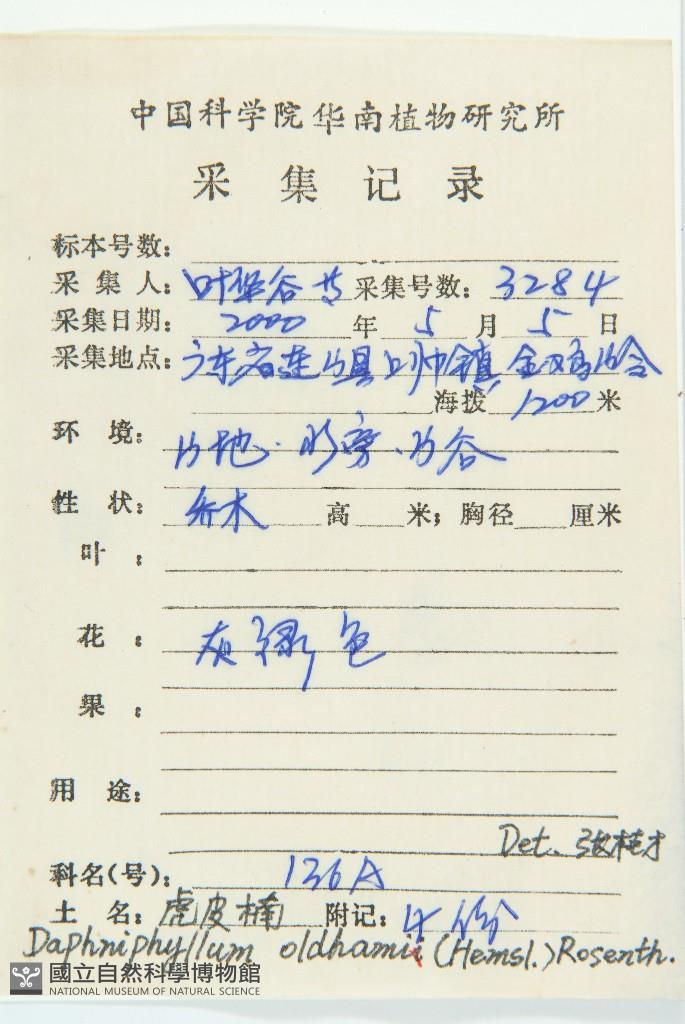 中国科学院华南植物研究所
采集记录
标本号数：
采集人：叶华谷 采集号数：3284
采集日期：2000年5月5日
采集地点：广东省连山县上帅镇，金鸡岭
海拨1200米
环境：山地．水旁．山谷
性状：乔木 高 米；胸径 厘米
叶：
花：灰绿色
果：
用途：
Det. 张桂才
科名(号)：136A
土名：虎皮楠 附记：4份
Daphniphyllum oldhamii (Hemsl.) Rosenth.
國立自然科學博物館
NATIONAL MUSEUM OF NATURAL SCIENCE